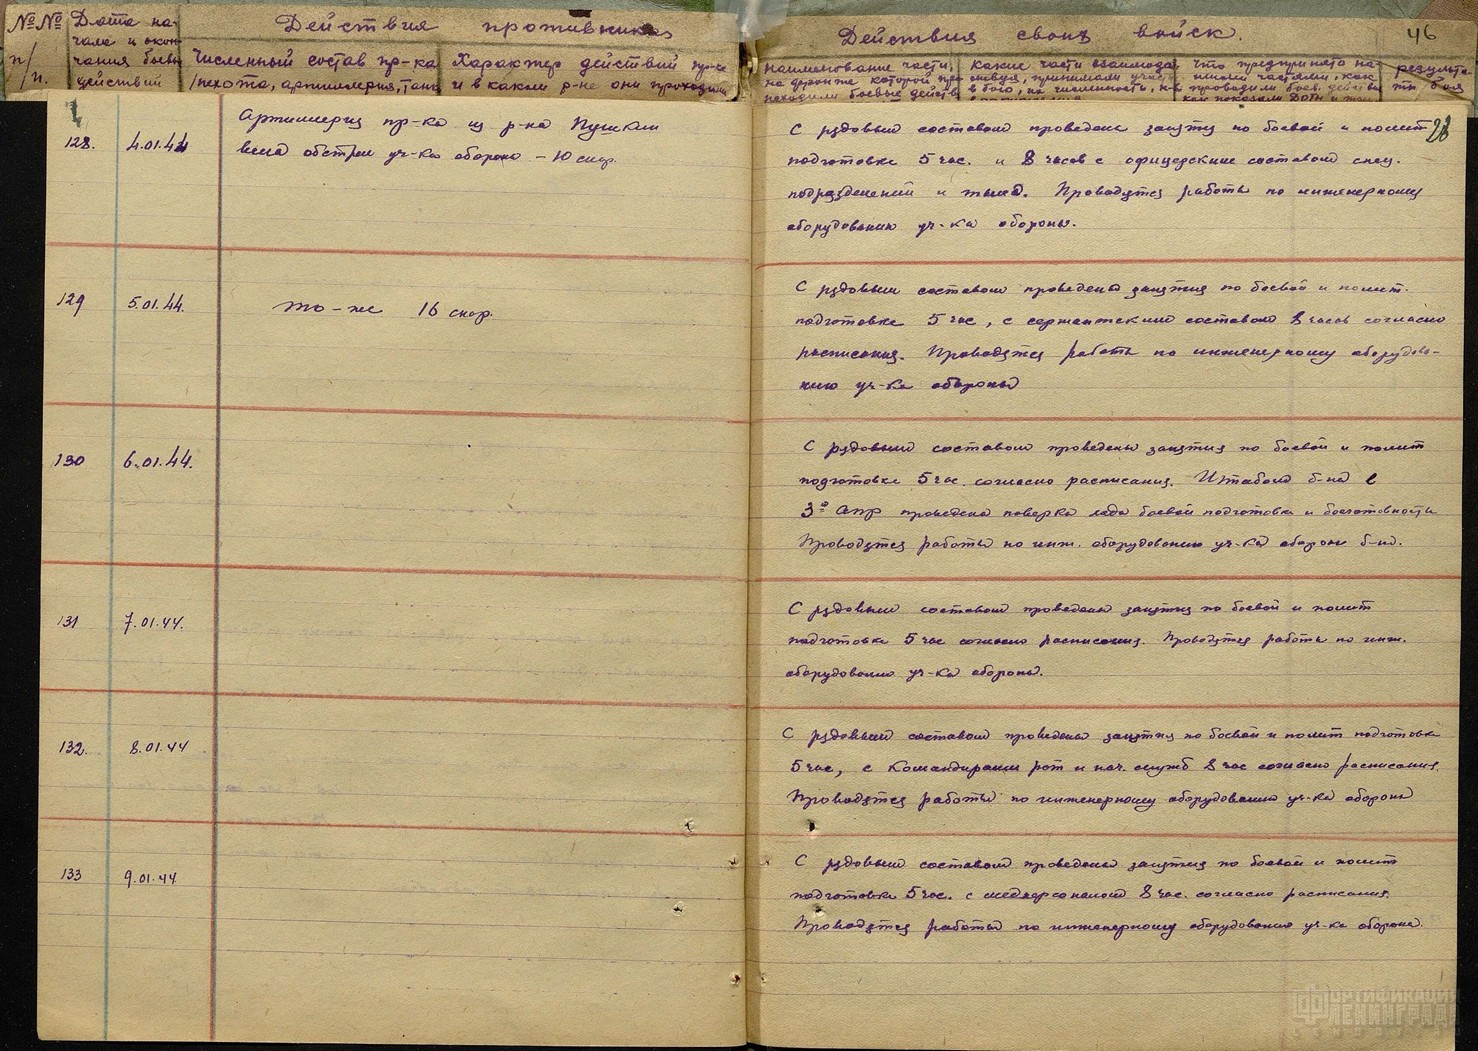 №№ п/п.
Дата начала и окончания боевых действий
Действия противника
Численный состав пр-ка /пехота, артиллерия, танк
Характер действий пр-ка и в каком р-не они проходили
Действия своих войск.
46
наименование части, на фронте которой
находили боевые действ
какие части взаимодей
ствуя, принимали участ
в бою, их численность
что предпринято на-
шими частями, как
проводили боев. действ
как показали ДОТы и
результа-
ты боя
28
128.
4.01.44
Артиллерия пр-ка из р-на Пушкин
вела обстрел уч-ка обороны – 10 снар.
С рядовым составом проведены занятия по боевой и полит
подготовке 5 час. и 8 часов с офицерским составом спец.
подразделений и тыла. Проводятся работы по инженерному
оборудованию уч-ка обороны.
129
5.01.44.
то-же 16 снар.
С рядовым составом проведены занятия по боевой и полит.
подготовке 5 час, с сержантским составом 8 часов согласно
расписания. Проводятся работы по инженерному оборудова-
нию уч-ка обороны
130
6.01.44.
С рядовым составом проведены занятия по боевой и полит
подготовке 5 час. согласно расписания. Штабом б-на в
3й апр проведена поверка хода боевой подготовки и боеготовности
Проводятся работы по инж. оборудованию уч-ка обороны б-на.
131
7.01.44.
С рядовым составом проведены занятия по боевой и полит
подготовке 5 час согласно расписания. Проводятся работы по инж.
оборудованию уч-ка обороны.
132.
8.01.44
С рядовым составом проведены занятия по боевой и полит подготовке
5 час, с командирами рот и нач. служб 8 час согласно расписания.
Проводятся работы по инженерному оборудованию уч-ка обороны
133
9.01.44
С рядовым составом проведены занятия по боевой и полит
подготовке 5 час. с медперсоналом 8 час. согласно расписания.
Проводятся работы по инженерному оборудованию уч-ка обороны.
ФОРТИФИКАЦИЯ
ЛЕНИНГРАДА